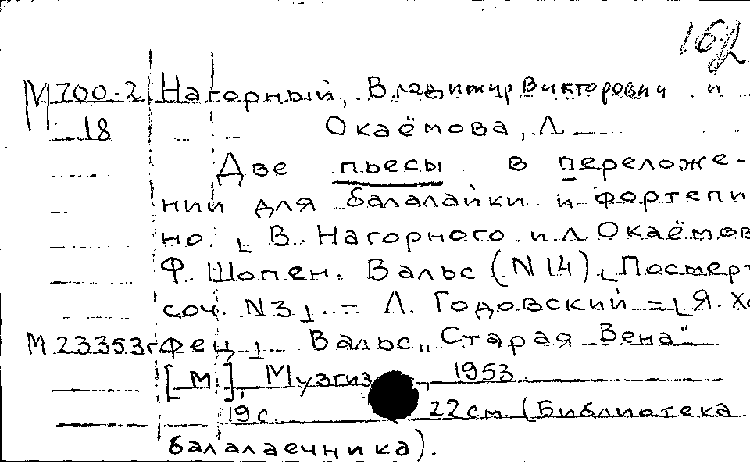 162
М 700-2 Нагорный, Владимир Викторович и
18 Окаёмова, Л
Две пьесы в переложе-
нии для балалайки и фортепи
но. [ В. Нагорного и Л Окаёмов
Ф. Шопен. Вальс (N 14). [ Посмерт
соч. N3 ]. = Л. Годовский = [ Я. Хе
М 23353г фец ]. Вальс „Старая Вена"
[ М. ], Музгиз, 1953.
19 с. 22 см. (Библиотека
балалаечника).